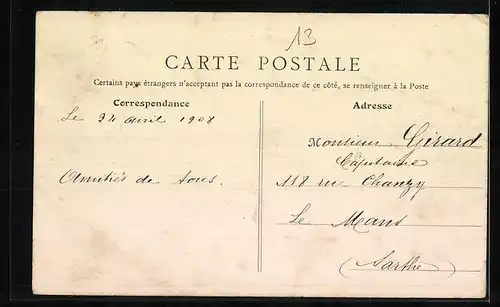 13
CARTE POSTALE
Certains pays étrangers n'acceptant pas la correspondance de ce côté, se renseigner à la Poste
Correspondance
Adresse
Le 24 avril 1908
Amitiés de tous.
Monsieur Girard
Capitaine
118 rue Chanzy
Le Mans
(Sarthe)